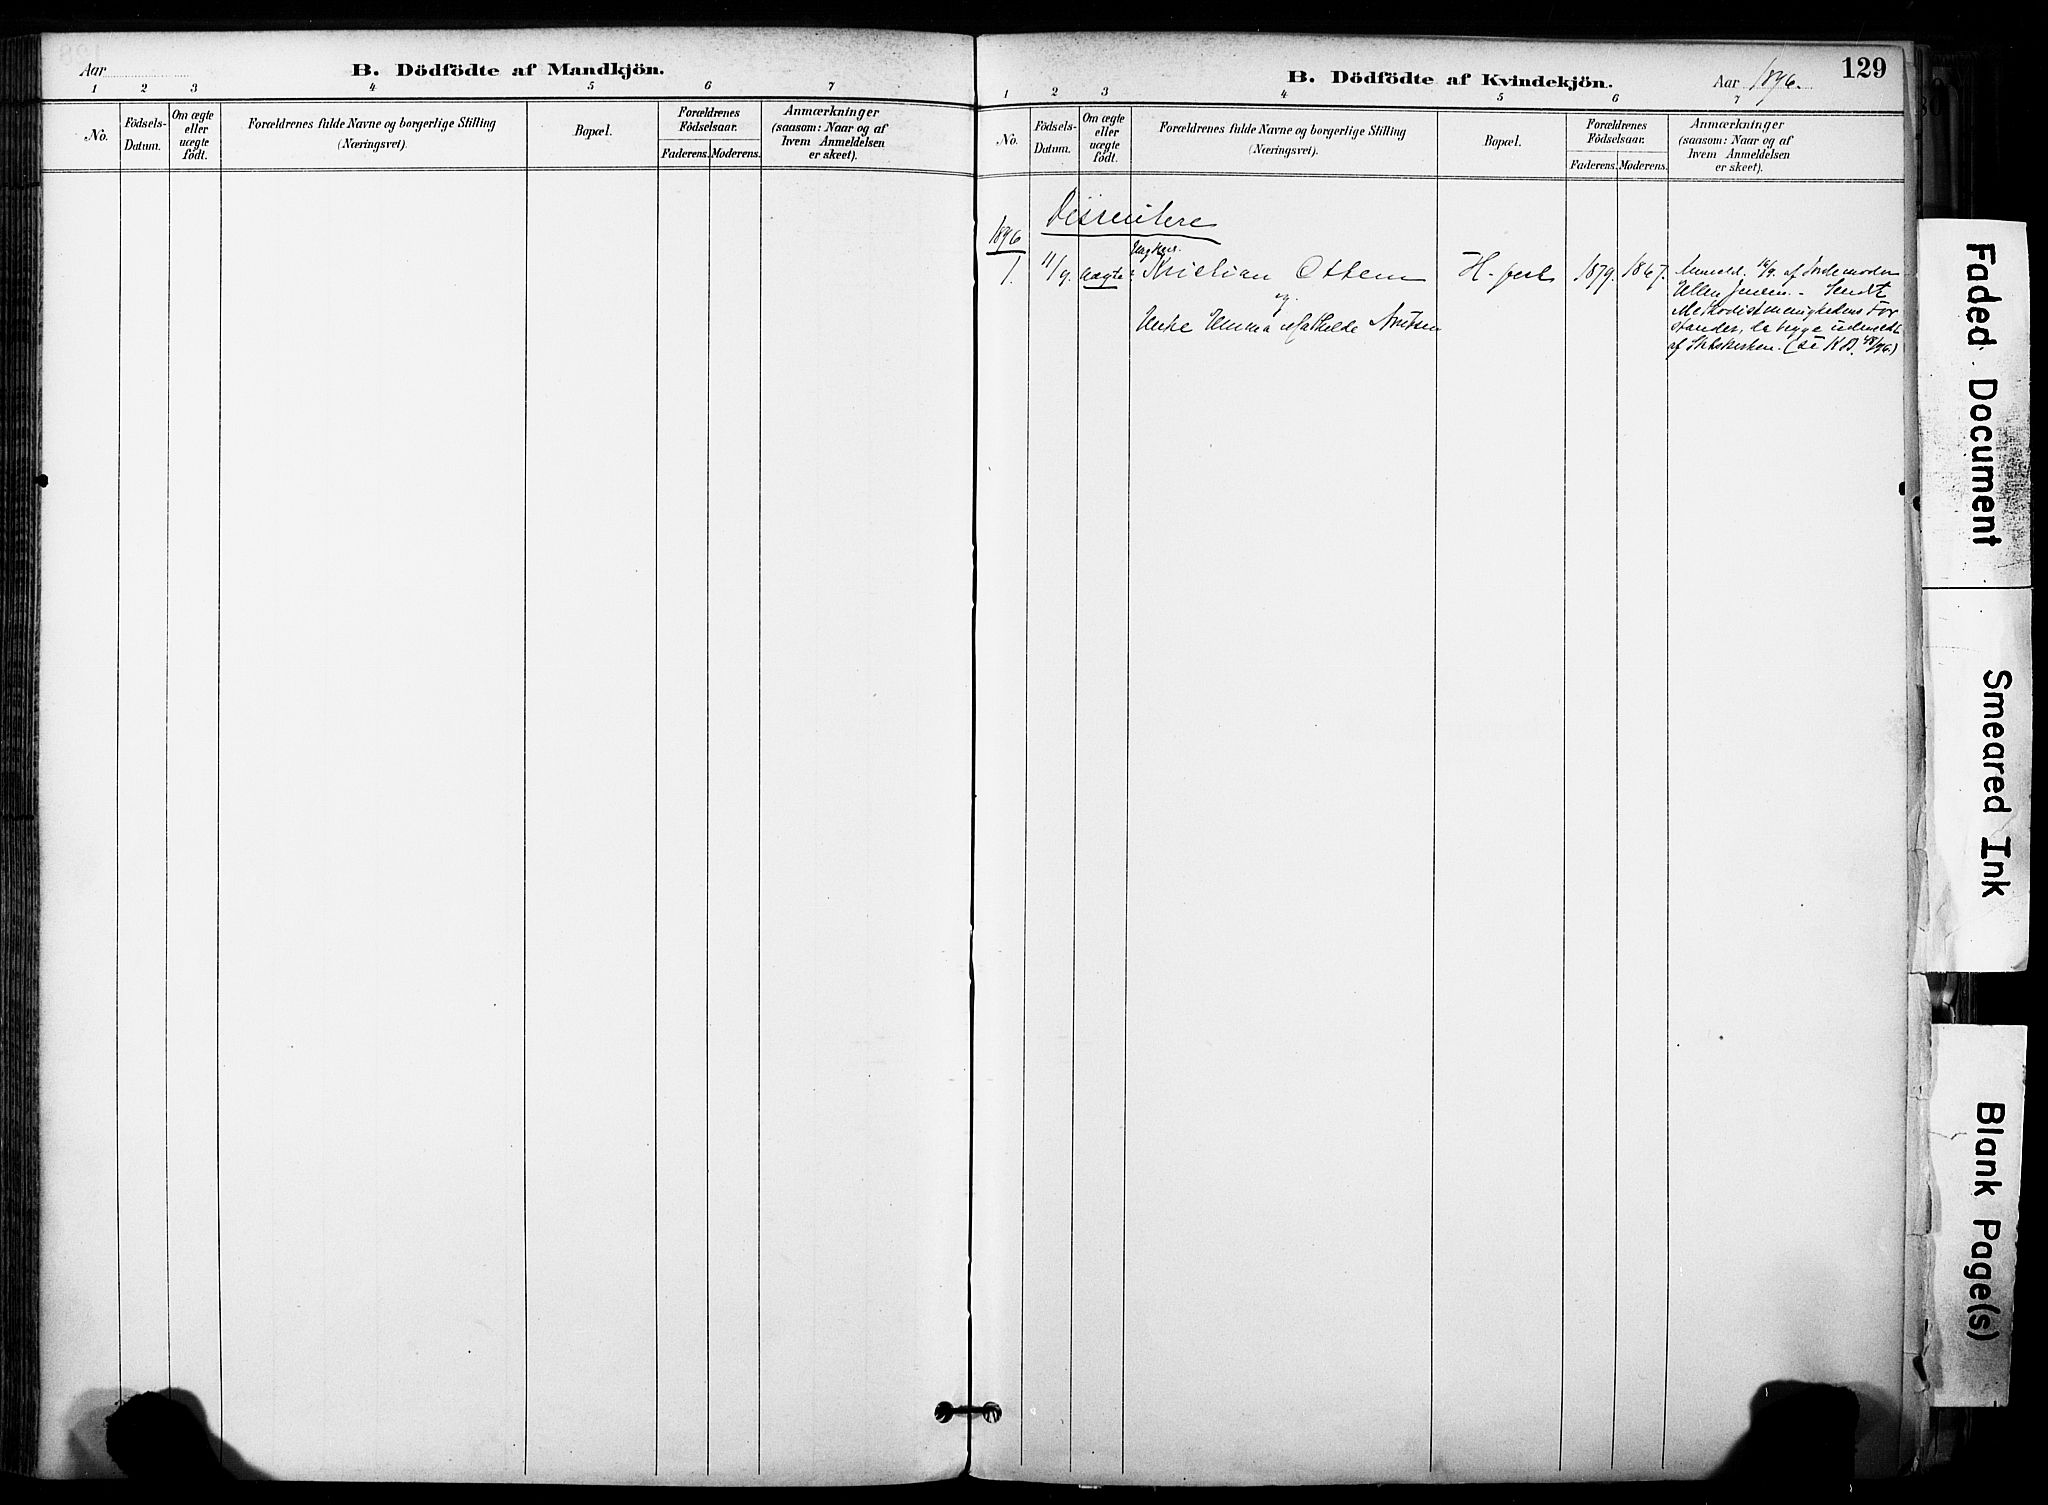 Aar
B. Dödfödte af Mandkjön.
1 2 3 4 5 6 7
No.
Födsels-
Datum.
Om ægte
eller
uægte
født.
Forældrenes fulde Navne og borgerlige Stilling
(Næringsvei).
Bopæl.
Forældrenes
Födselsaar.
Faderens. Moderens.
Anmærkninger
(saasom: Naar og af
hvem Anmeldelsen
er skeet).
B. Dödfödte af Kvindekjön.
Aar 1896.
129
1 2 3 4 5 6 7
No.
Födsels-
Datum.
Om ægte
eller
uægte
födt.
Forældrenes fulde Navne og borgerlige Stilling
(Næringsvei).
Bopæl.
Forældrenes
Födselsaar.
Faderens. Moderens.
Anmærkninger
(saasom: Naar og af
hvem Anmeldelsen
er skeet).
Dissentere
1896
Ungkar.
1. 11/9 uægte Kristian Ottem H. fest 1879. 1867.
og
Emma Mathilde
Anmeld. af Jordemoder
Ellen Jensen. - Sendt
Methodistmenighedens For
stander, da begge udmeldt
af Statskirken. (se K.B. 48/96)
Faded Document
Smeared Ink
Blank Page(s)